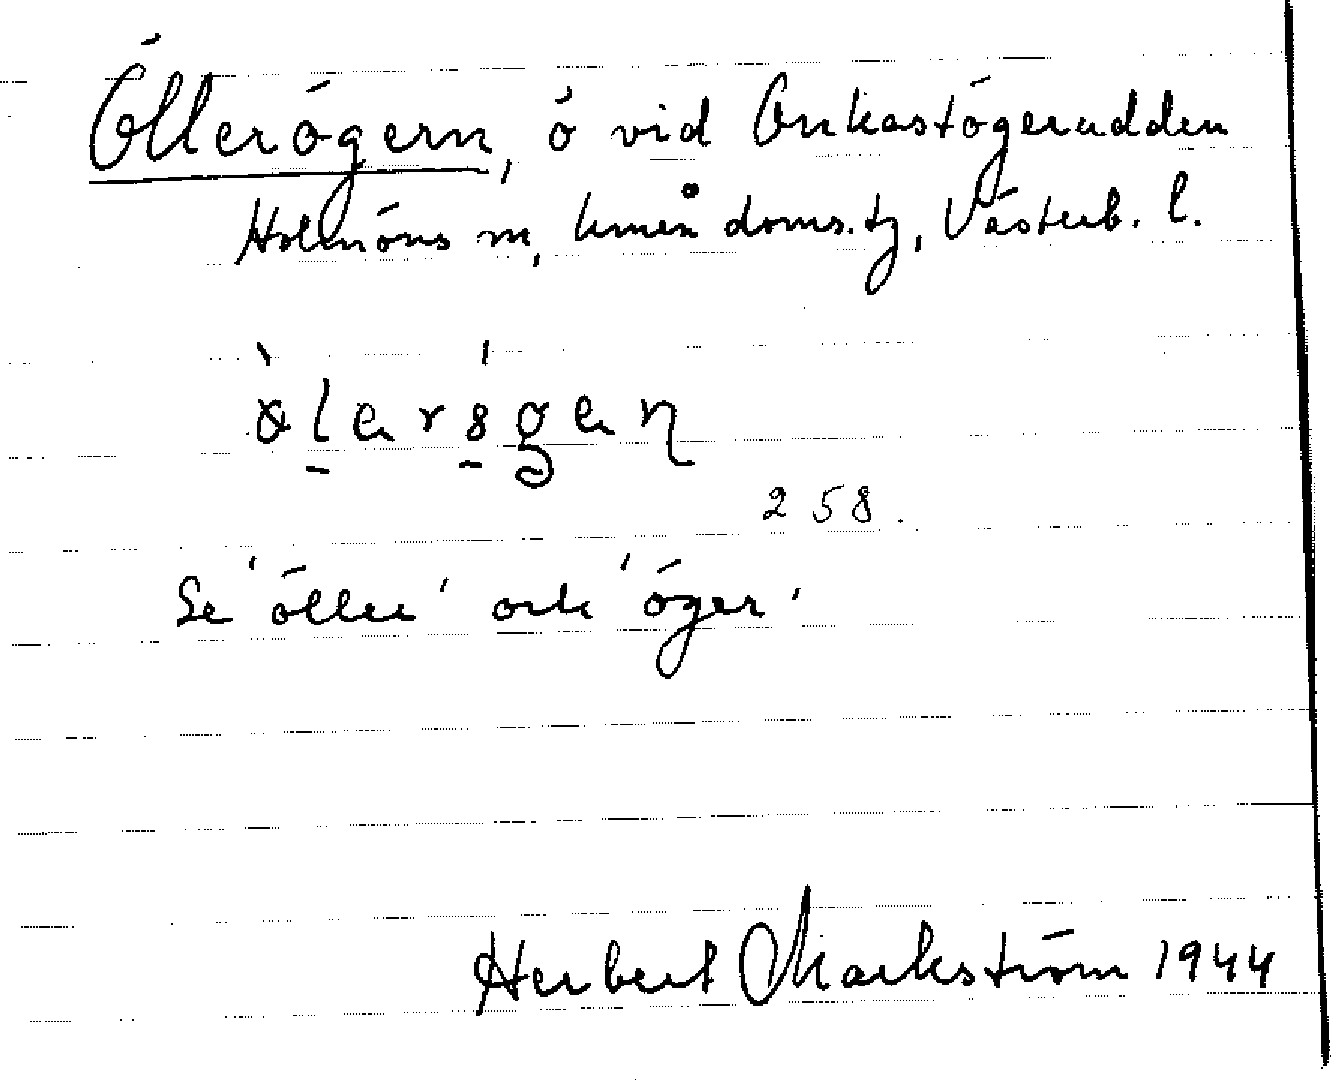 Öllerögern, ö vid Onkastögerudden
Holmöns sn, Umeå doms. tg, Västerb. l.
258.
Se 'öller' och 'öger'.
Herbert Markström 1944